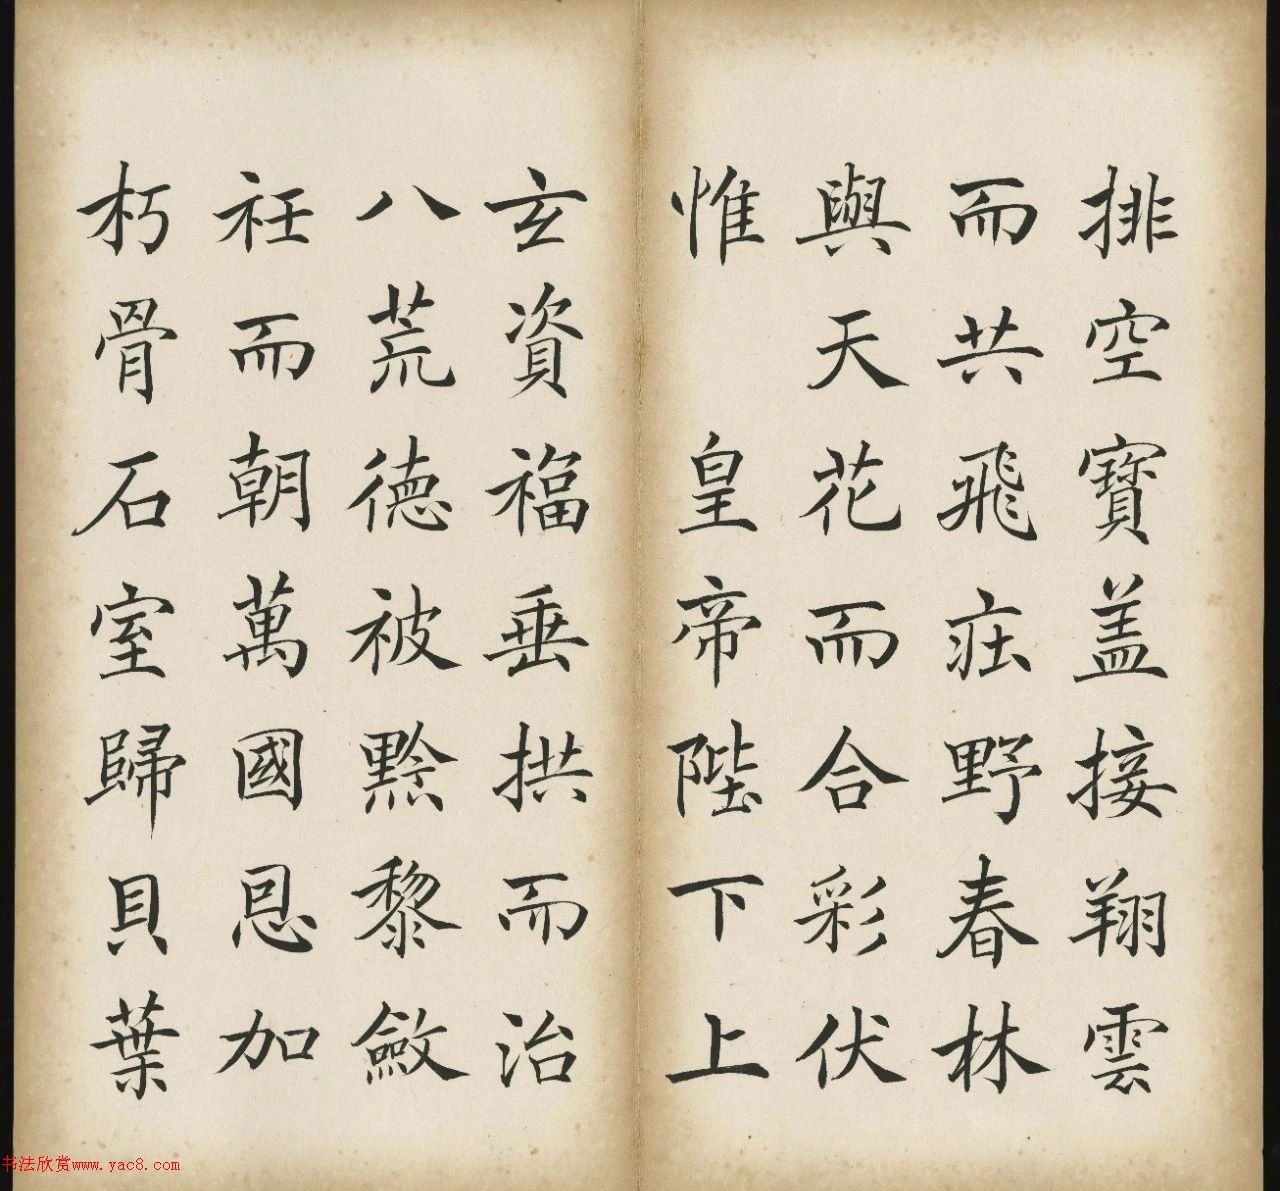 排空寶盖接翔雲
而共飛莊野春林
與天花而合彩伏
惟　皇帝陛下上
玄資福垂拱而治
八荒德被黔黎斂
衽而朝萬國恩加
朽骨石室歸貝葉
书法欣赏www.yac8.com